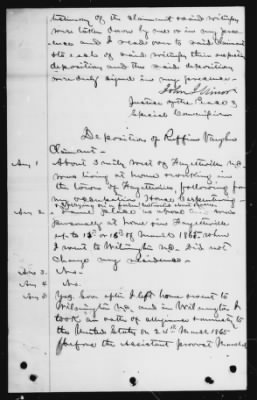 testimony of the claimant said witness
were taken down by me or in my presence
and I read over to said Claimant
& each of said witness their respective
deposition and the said deposition
were duly signed in my presence
John
Justice of the Peace &
Special Commissioner
Deposition of Ruffin Vaughn
Claimant.
Ans 1. About 3 mile west of Fayetteville N.C.
was living at home working in
the town of Fayetteville, following
my occupation House Carpentering
Ans 2.
at home near Fayetteville
up to 12th or 15th of March 1865 when
I went to Wilmington N.C. Did not
change my residence.
Ans 3. No.
Ans 4. No.
Ans 5 Yes, Soon after I left home & went to
Wilmington N.C. and in Wilmington I
took an oath of allegiance & amnesty to
the United States on 24th March 1865
before the Assistant provost Marshal